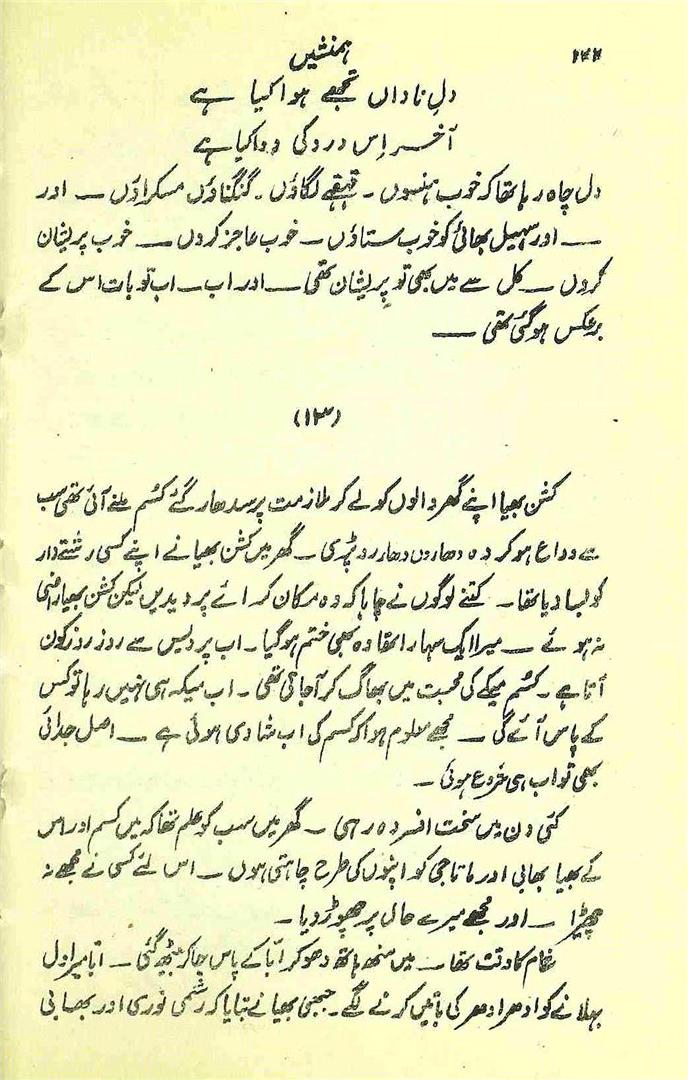 ہمنشیں ۱۴۲
دلِ ناداں تجھے ہوا کیا ہے
آخر اِس درد کی دوا کیا ہے
دل چاہ رہا تھا کہ خوب ہنسوں ۔ قہقہے لگاؤں ۔ گنگناؤں مسکراؤں — اور
— اور سہیل بھائی کو خوب ستاؤں — خوب عاجز کروں — خوب پریشان
کروں — کل سے میں بھی تو پریشان تھی — اور اب — اب تو بات اس کے
برعکس ہو گئی تھی —
(۱۳)
کشن بھیا اپنے گھر والوں کو لے کر ملازمت پر سدھار گئے کسُم ملنے آئی تھی سب
سے وداع ہو کر وہ دھاروں دھار رو پڑی — گھر میں کشن بھیا نے اپنے کسی رشتے دار
کو بسا دیا تھا — کتنے لوگوں نے چاہا کہ وہ مکان کرائے پر دیدیں لیکن کشن بھیا راضی
نہ ہوئے — میرا ایک سہارا تھا وہ بھی ختم ہو گیا ۔ اب پردیس سے روز روز کون
آتا ہے ۔ کسُم میکے کی محبت میں بھاگ کر آ جاتی تھی ۔ اب میکہ ہی نہیں رہا تو کس
کے پاس آئے گی — مجھے معلوم ہوا کہ کسم کی اب شادی ہوئی ہے — اصل جدائی
بھی تو اب ہی شروع ہوئی ۔
کئی دن میں سخت افسردہ رہی — گھر میں سب کو علم تھا کہ میں کسم اور اس
کے بھیا بھابی اور ماتا جی کو اپنوں کی طرح چاہتی ہوں — اس لئے کسی نے مجھے نہ
چھیڑا — اور مجھے میرے حال پر چھوڑ دیا ۔
شام کا وقت تھا — میں منھ ہاتھ دھو کر ابّا کے پاس جا کر بیٹھ گئی — ابّا میرا دل
بہلانے کو ادھر ادھر کی باتیں کرنے لگے ۔ بھیا نے بتایا کہ رشمی نوری اور بھابی